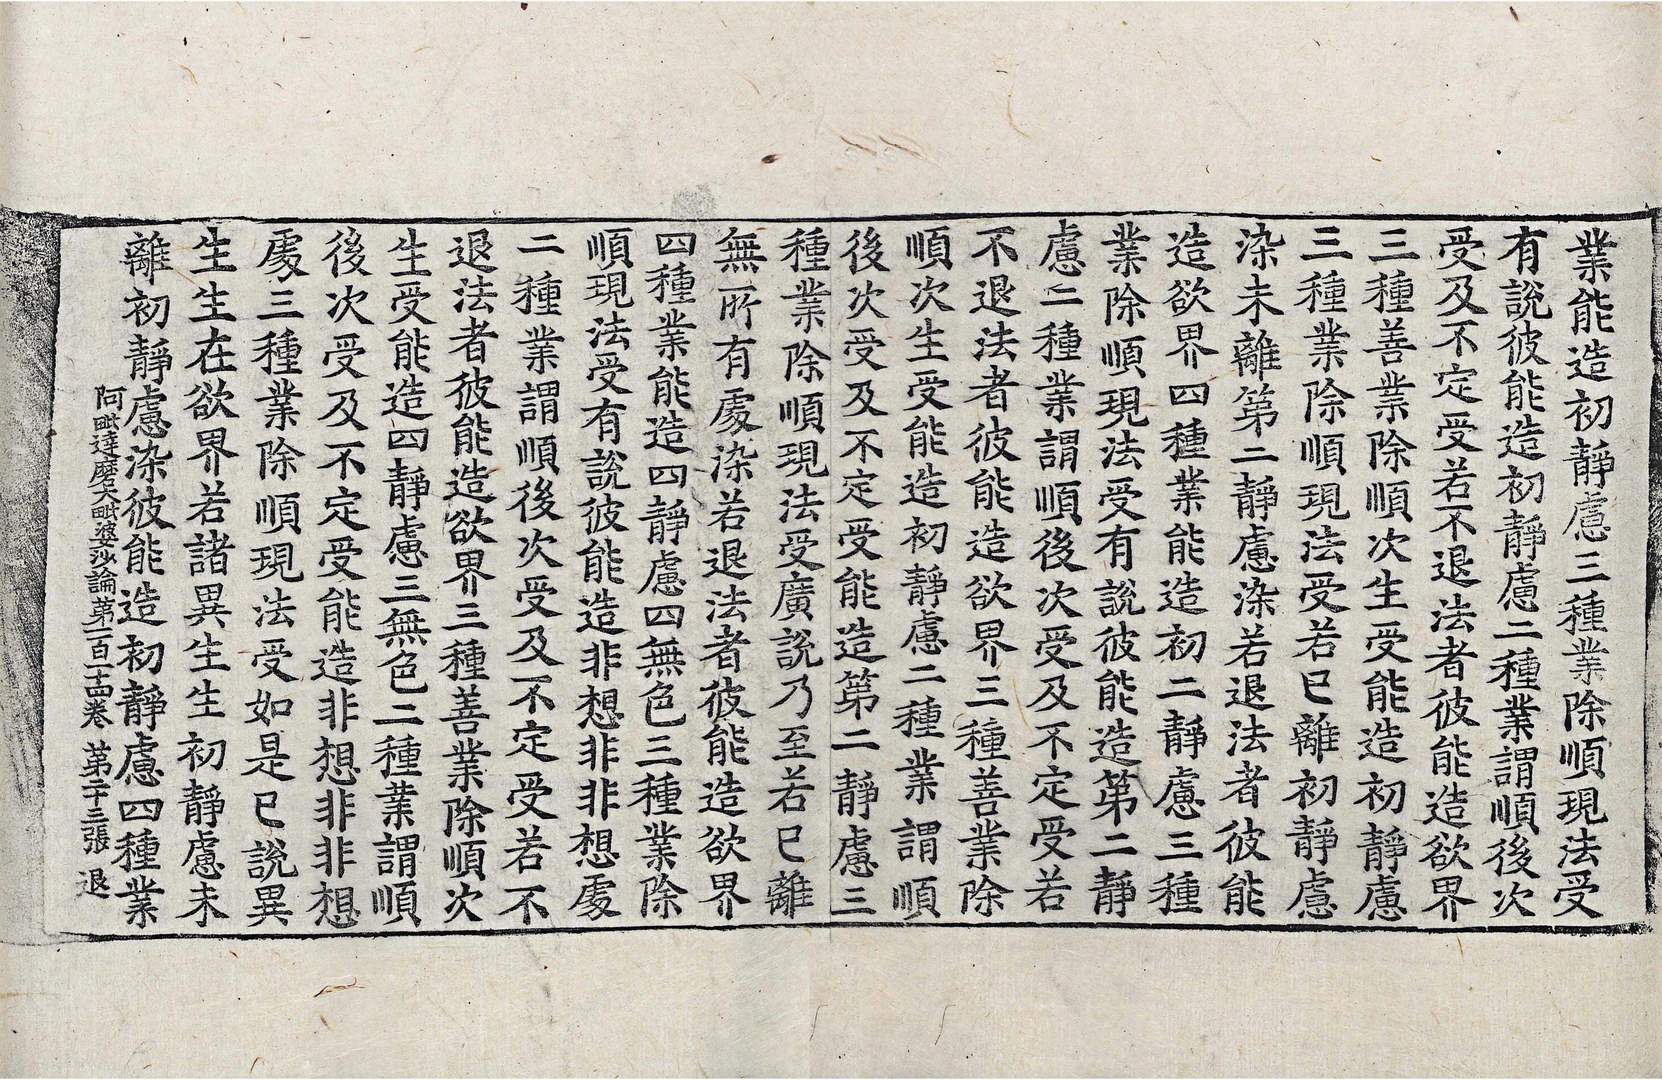 業能造初靜慮三種業除順現法受
有說彼能造初靜慮二種業謂順後次
受及不定受若不退法者彼能造欲界
三種善業除順次生受能造初靜慮
三種業除順現法受若已離初靜慮
染未離第二靜慮染若退法者彼能
造欲界四種業能造初二靜慮三種
業除順現法受有說彼能造第二靜
慮二種業謂順後次受及不定受若
不退法者彼能造欲界三種善業除
順次生受能造初靜慮二種業謂順
後次受及不定受能造第二靜慮三
種業除順現法受廣說乃至若已離
無所有處染若退法者彼能造欲界
四種業能造四靜慮四無色三種業除
順現法受有說彼能造非想非非想處
二種業謂順後次受及不定受若不
退法者彼能造欲界三種善業除順次
生受能造四靜慮三無色二種業謂順
後次受及不定受能造非想非非想
處三種業除順現法受如是已說異
生生在欲界若諸異生生初靜慮未
離初靜慮染彼能造初靜慮四種業
阿毗達磨大毗婆沙論第一百一十四卷 第二十三張 退